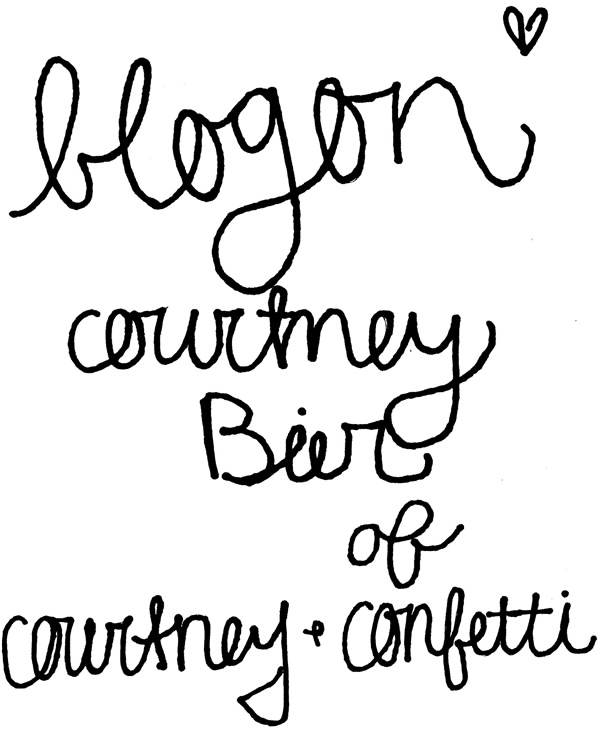 blog on
courtney
Bier
of
courtney + confetti